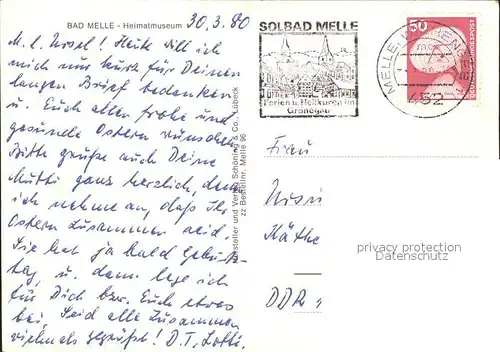 BAD MELLE - Heimatmuseum 30.3.80
M. l. Ursel! Heute will ich
mich nur kurz für Deinen
langen Brief bedanken
u. Euch allen frohe und
gesunde Ostern wünschen.
Bitte grüße auch Deine
Mutti ganz herzlich, denn
ich nehme an, daß Ihr
Ostern zusammen seid.
Sie hat ja bald Geburts-
tag, u. dann lege ich
für Dich bzw. Euch etwas
bei. Seid alle zusammen
vielmals gegrüßt! D. T. Lotti.
Hersteller und Verlag Schöning & Co., Lübeck
zz Bestellnr. Melle 96
SOLBAD MELLE
Ferien u. Heilkuren im
Grönegau
MELLE
452
50
DEUTSCHE BUNDESPOST
Frau
Käthe
DDR
privacy protection
Datenschutz